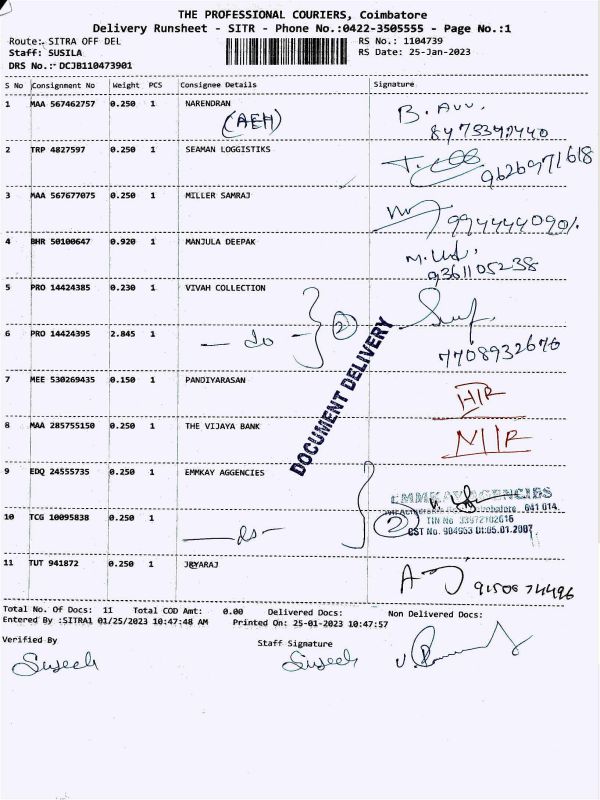 THE PROFESSIONAL COURIERS, Coimbatore
Delivery Runsheet - SITR - Phone No.:0422-3505555 - Page No.:1
Route:- SITRA OFF DEL RS No.: 1104739
Staff: SUSILA RS Date: 25-Jan-2023
DRS No.:- DCJB110473901
S No Consignment No Weight PCS Consignee Details Signature
1 MAA 567462757 0.250 1 NARENDRAN
(AEH)
2 TRP 4827597 0.250 1 SEAMAN LOGGISTIKS
9626971618
3 MAA 567677075 0.250 1 MILLER SAMRAJ
4 BHR 50100647 0.920 1 MANJULA DEEPAK
9361105238
5 PRO 14424385 0.230 1 VIVAH COLLECTION
2
6 PRO 14424395 2.845 1 - do -
7708932670
DOCUMENT DELIVERY
7 MEE 530269435 0.150 1 PANDIYARASAN
8 MAA 285755150 0.250 1 THE VIJAYA BANK
9 EDQ 24555735 0.250 1 EMMKAY AGGENCIES
EMMKAY AGENCIES
641 014
10 TCG 10095838 0.250 1 - do -
2
TIN No 33972102616
CST No. 904953 Dt:05.01.2007
11 TUT 941872 0.250 1 JEYARAJ
Total No. Of Docs: 11 Total COD Amt: 0.00 Delivered Docs: Non Delivered Docs:
Entered By :SITRA1 01/25/2023 10:47:48 AM Printed On: 25-01-2023 10:47:57
Verified By Staff Signature